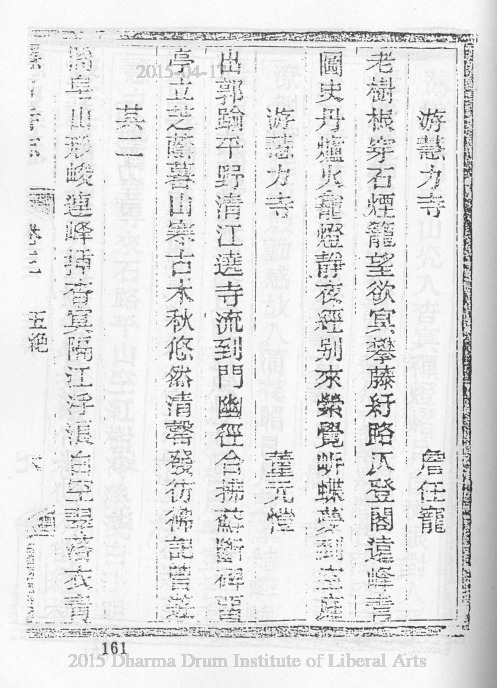 游慧力寺 詹任寵
老樹根穿石煙籠望欲寘攀藤紆路仄登閣遠峰青
圖史丹爐火龕燈靜夜經别來縈覺昕蝶夢到空庭
游慧力寺 董元愷
出郭踰平野清江遶寺流到門幽徑合拂蘚斷碑畱
亭立芝蘭暮山寒古木秋悠然清磬發彷彿記曾遊
其二
阜山形峻連峰揷杳冥隔江浮浪白至翠落衣青
卷三 五絕
161
2015-04-1
2015 Dharma Drum Institute of Liberal Arts